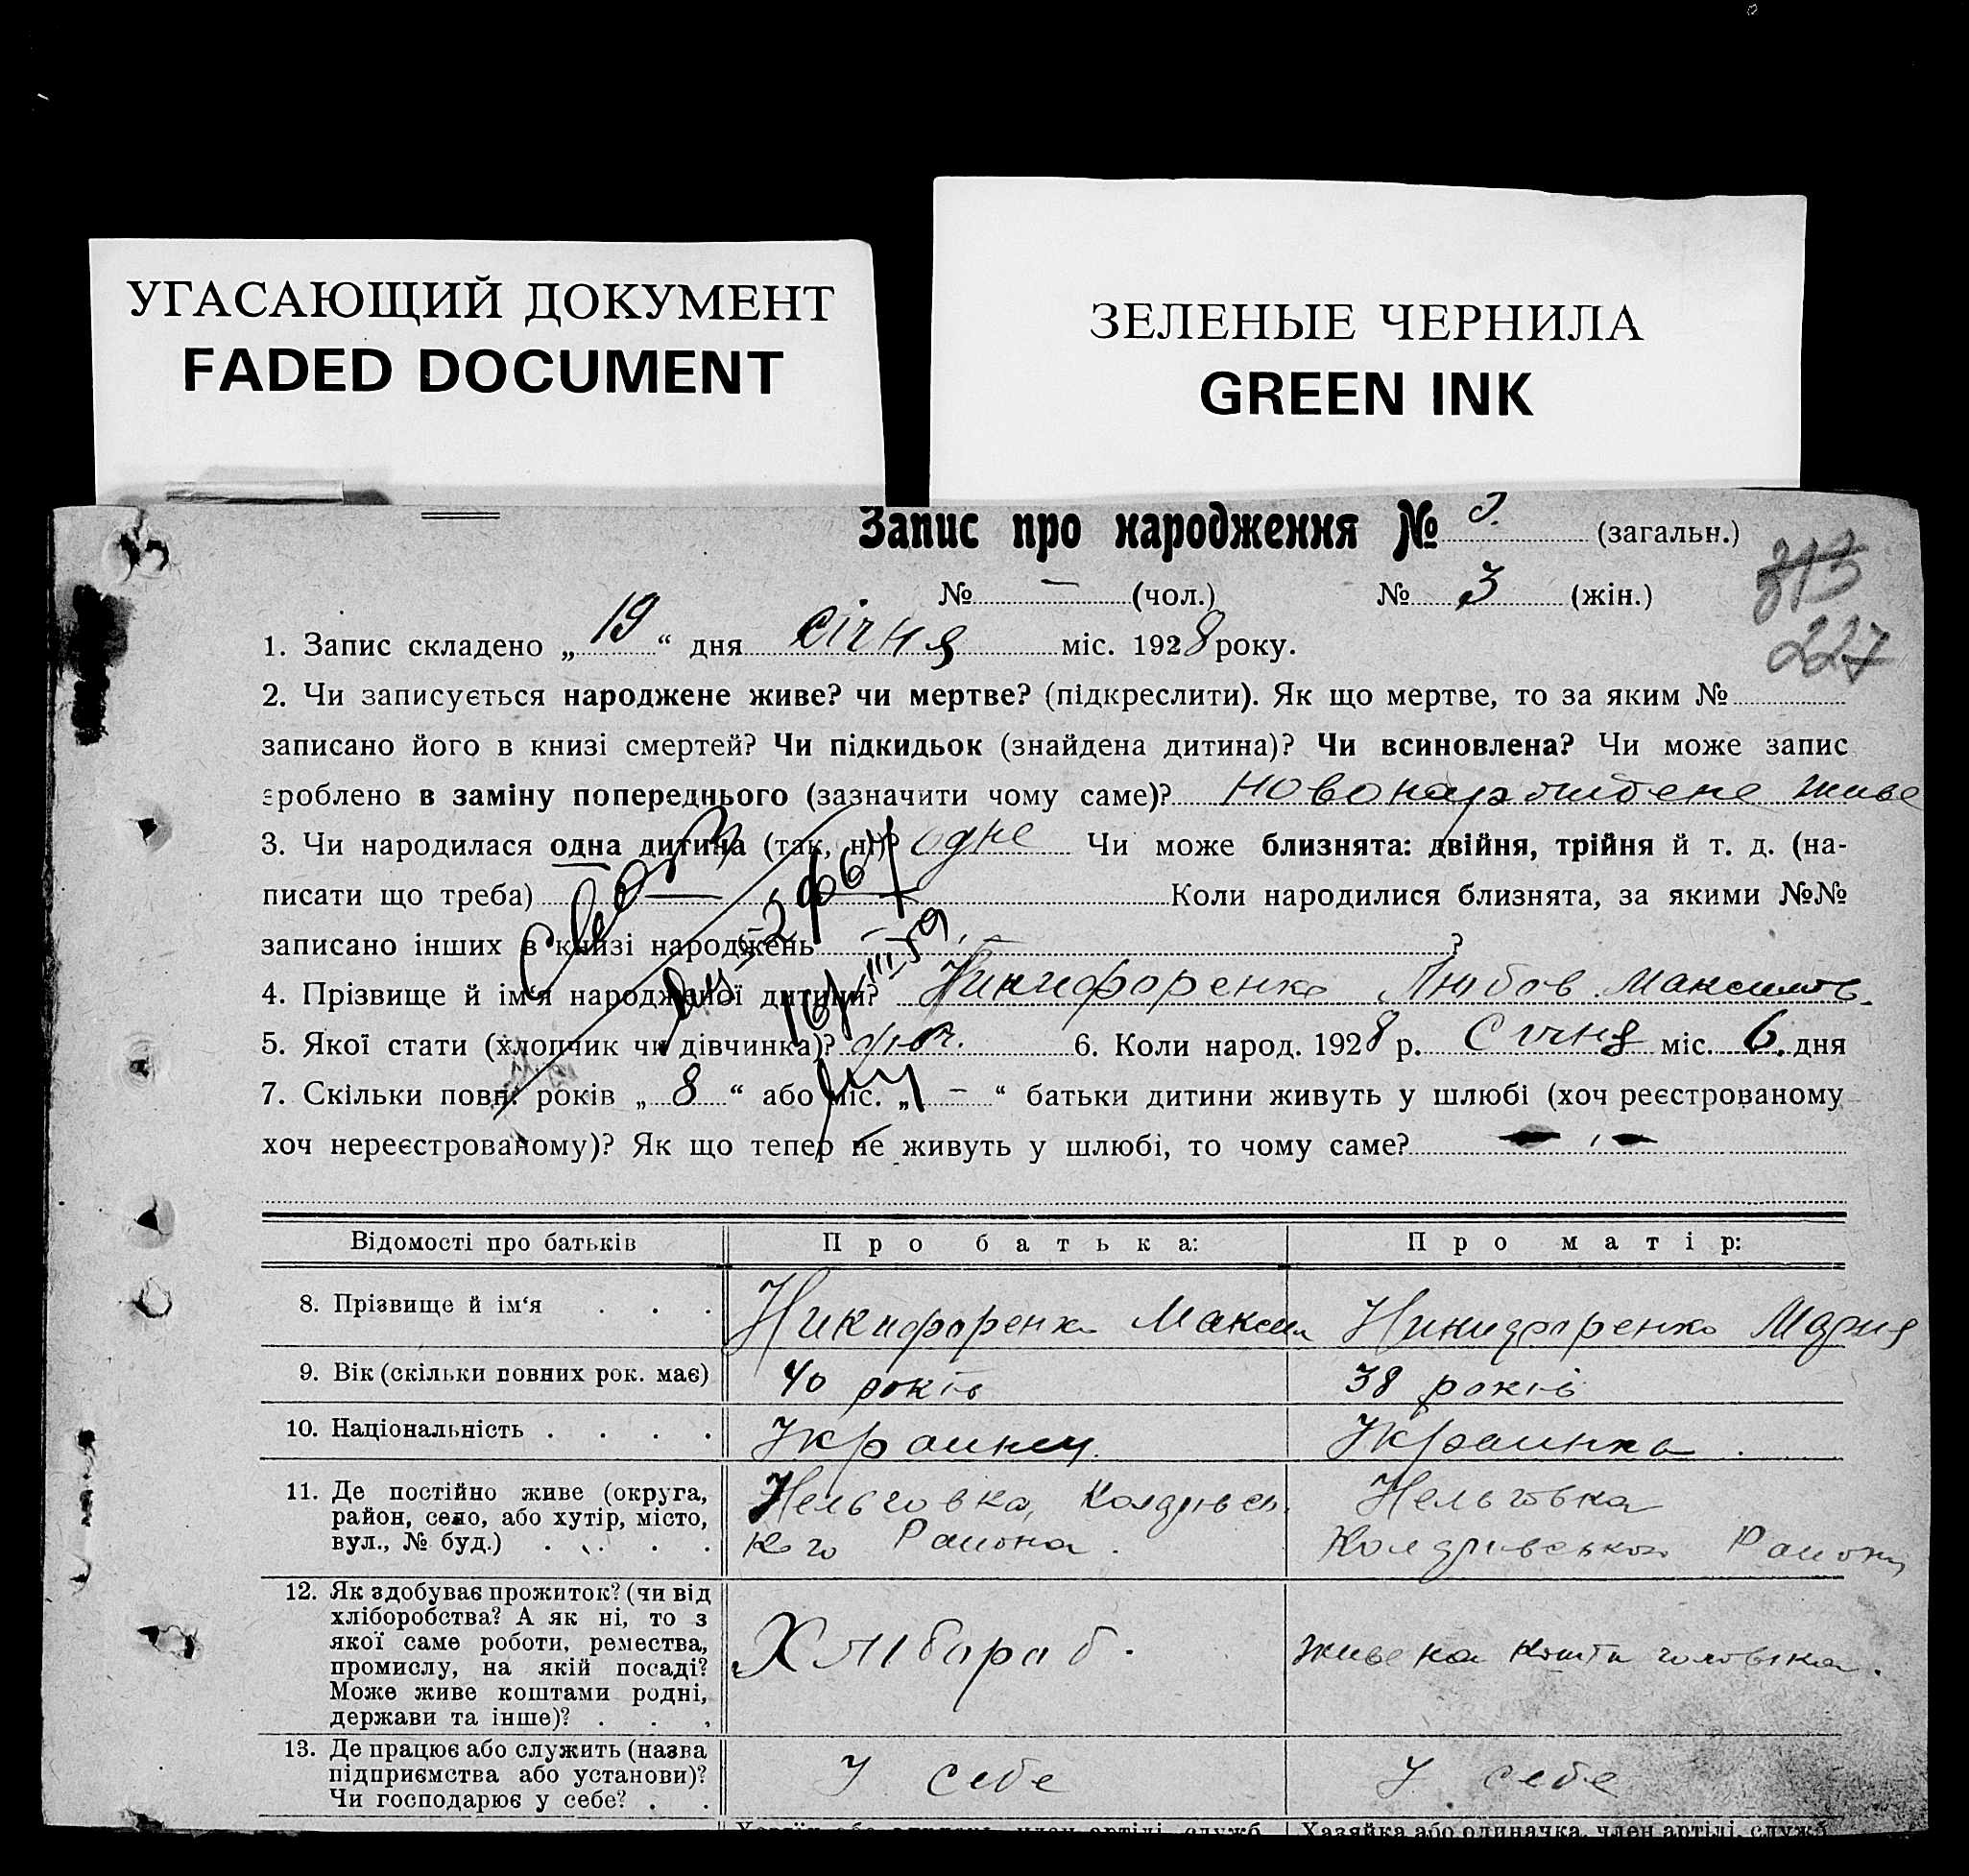 УГАСАЮЩИЙ ДОКУМЕНТ
FADED DOCUMENT
ЗЕЛЕНЫЕ ЧЕРНИЛА
GREEN INK
Запис про народження № (загальн.)
№ — (чол.) № 3 (жін.)
313
227
1. Запис складено „19“ дня січня міс. 1928 року.
2. Чи записується народжене живе? чи мертве? (підкреслити). Як що мертве, то за яким №
записано його в книзі смертей? Чи підкидьок (знайдена дитина)? Чи всиновлена? Чи може запис
зроблено в заміну попереднього (зазначити чому саме)? живе
3. Чи народилася одна дитина (так, ні)? одне Чи може близнята: двійня, трійня й т. д. (на-
писати що треба) — Коли народилися близнята, за якими №№
записано інших в книзі народжень — ?
4. Прізвище й ім‘я народженої дитини? Никифоренко Любов Максимов.
5. Якої стати (хлопчик чи дівчинка)? 6. Коли народ. 1928 р. Січня міс. 6. дня
7. Скільки повні років „8“ або міс. „—“ батьки дитини живуть у шлюбі (хоч реєстрованому
хоч нереєстрованому)? Як що тепер не живуть у шлюбі, то чому саме?
Відомості про батьків Про батька: Про матір:
8. Прізвище й ім‘я . . . Никифоренко Максим Никифоренко Мария
9. Вік (скільки повних рок. має) 40 років 38 років
10. Національність . . . . Украинец. Украинка.
11. Де постійно живе (округа, Нельговка, Нельговка
район, село, або хутір, місто,
вул., № буд.) . . . . кого Района. Района
12. Як здобуває прожиток? (чи від
хліборобства? А як ні, то з
якої саме роботи, ремества, Хлібороб. живе на кошти чоловіка.
промислу, на якій посаді?
Може живе коштами родні,
держави та інше)? . . .
13. Де працює або служить (назва
підприємства або установи)? У себе У себе
Чи господарює у себе? . .